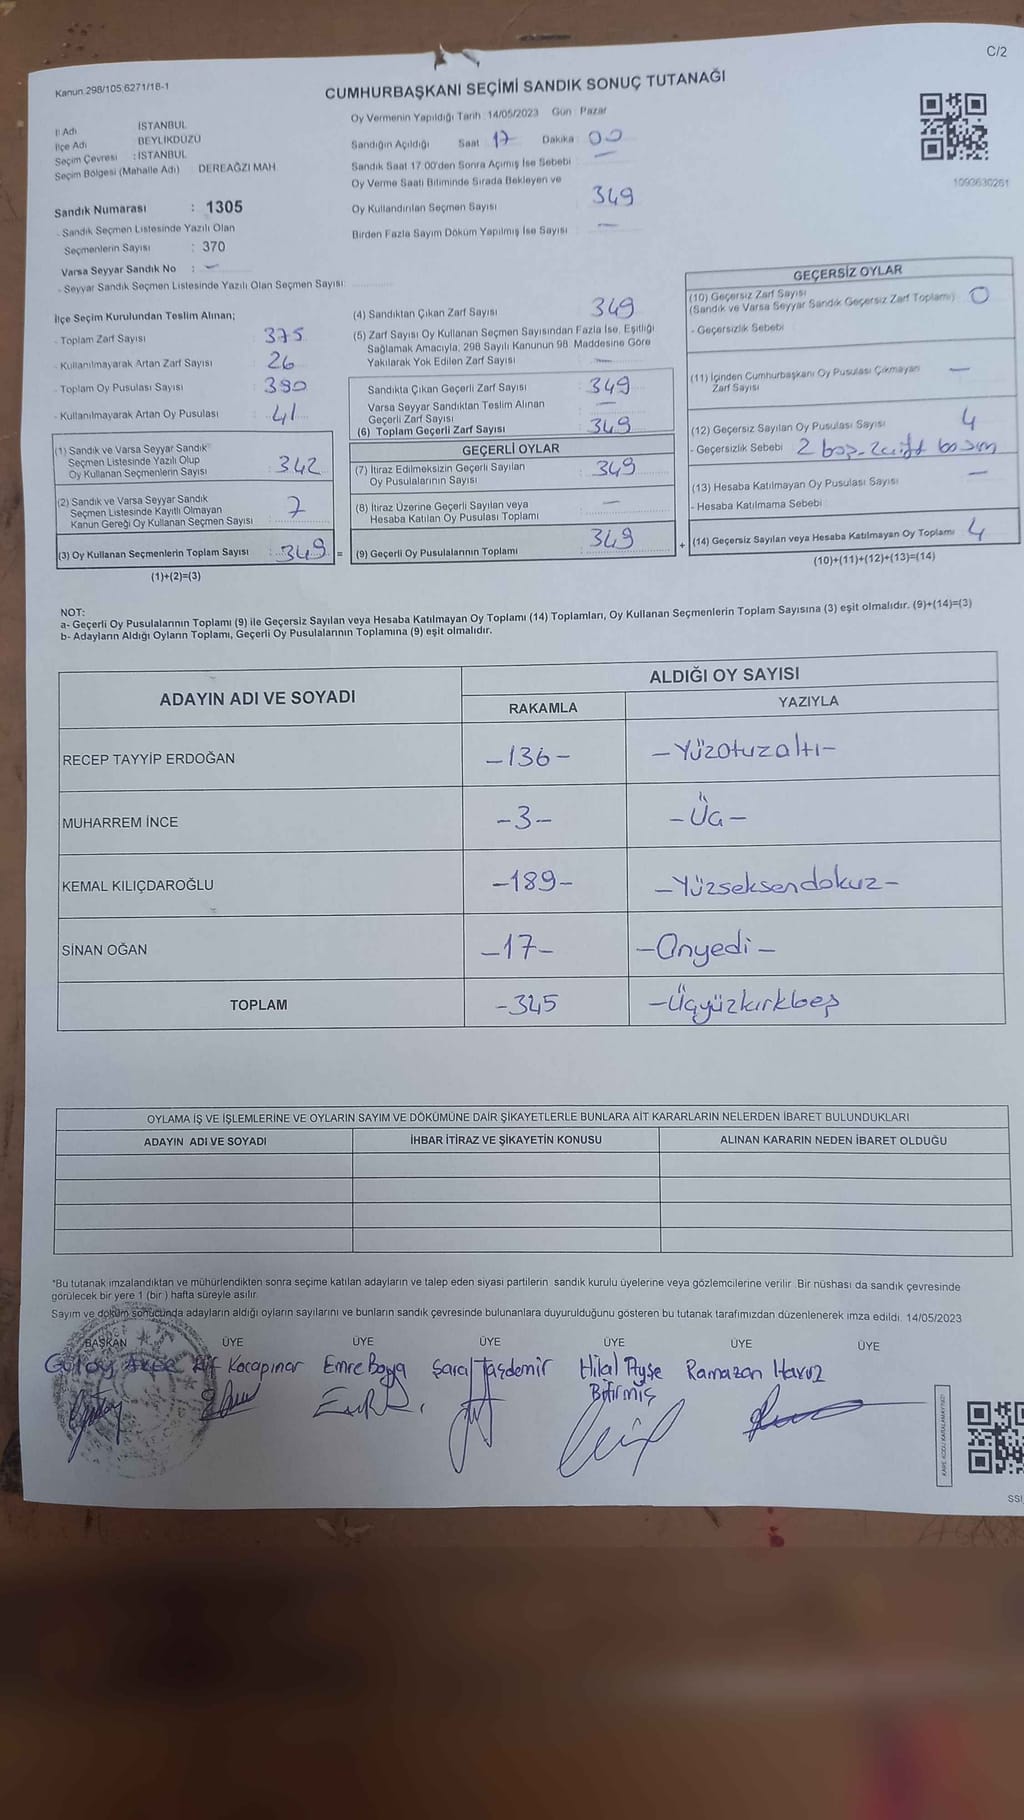 C/2
Kanun 298/105;6271/18-1
CUMHURBAŞKANI SEÇİMİ SANDIK SONUÇ TUTANAĞI
İl Adı İSTANBUL
İlçe Adı BEYLİKDÜZÜ
Seçim Çevresi : İSTANBUL
Seçim Bölgesi (Mahalle Adı) DEREAĞZI MAH
Sandık Numarası : 1305
- Sandık Seçmen Listesinde Yazılı Olan
Seçmenlerin Sayısı : 370
Varsa Seyyar Sandık No : -
- Seyyar Sandık Seçmen Listesinde Yazılı Olan Seçmen Sayısı
Oy Vermenin Yapıldığı Tarih 14/05/2023 Gün : Pazar
Sandığın Açıldığı Saat 17 Dakika 00
Sandık Saat 17.00'den Sonra Açımış İse Sebebi -
Oy Verme Saati Bitiminde Sırada Bekleyen ve
Oy Kullandırılan Seçmen Sayısı 349
Birden Fazla Sayım Döküm Yapılmış İse Sayısı -
1093630261
İlçe Seçim Kurulundan Teslim Alınan;
- Toplam Zarf Sayısı : 375
- Kullanılmayarak Artan Zarf Sayısı : 26
- Toplam Oy Pusulası Sayısı : 390
- Kullanılmayarak Artan Oy Pusulası : 41
(1) Sandık ve Varsa Seyyar Sandık
Seçmen Listesinde Yazılı Olup
Oy Kullanan Seçmenlerin Sayısı : 342
(2) Sandık ve Varsa Seyyar Sandık
Seçmen Listesinde Kayıtlı Olmayan
Kanun Gereği Oy Kullanan Seçmen Sayısı 7
(3) Oy Kullanan Seçmenlerin Toplam Sayısı : 349 =
(1)+(2)=(3)
(4) Sandıktan Çıkan Zarf Sayısı 349
(5) Zarf Sayısı Oy Kullanan Seçmen Sayısından Fazla İse, Eşitliği
Sağlamak Amacıyla, 298 Sayılı Kanunun 98. Maddesine Göre
Yakılarak Yok Edilen Zarf Sayısı -
Sandıkta Çıkan Geçerli Zarf Sayısı : 349
Varsa Seyyar Sandıktan Teslim Alınan
Geçerli Zarf Sayısı : -
(6) Toplam Geçerli Zarf Sayısı : 349
GEÇERLİ OYLAR
(7) İtiraz Edilmeksizin Geçerli Sayılan
Oy Pusulalarının Sayısı : 349
(8) İtiraz Üzerine Geçerli Sayılan veya
Hesaba Katılan Oy Pusulası Toplamı -
(9) Geçerli Oy Pusulalarının Toplamı : 349 +
GEÇERSİZ OYLAR
(10) Geçersiz Zarf Sayısı
(Sandık ve Varsa Seyyar Sandık Geçersiz Zarf Toplamı) 0
- Geçersizlik Sebebi
(11) İçinden Cumhurbaşkanı Oy Pusulası Çıkmayan
Zarf Sayısı -
(12) Geçersiz Sayılan Oy Pusulası Sayısı 4
- Geçersizlik Sebebi 2 boş-2çift basım
(13) Hesaba Katılmayan Oy Pusulası Sayısı -
- Hesaba Katılmama Sebebi
(14) Geçersiz Sayılan veya Hesaba Katılmayan Oy Toplamı 4
(10)+(11)+(12)+(13)=(14)
NOT:
a- Geçerli Oy Pusulalarının Toplamı (9) ile Geçersiz Sayılan veya Hesaba Katılmayan Oy Toplamı (14) Toplamları, Oy Kullanan Seçmenlerin Toplam Sayısına (3) eşit olmalıdır. (9)+(14)=(3)
b- Adayların Aldığı Oyların Toplamı, Geçerli Oy Pusulalarının Toplamına (9) eşit olmalıdır.
ADAYIN ADI VE SOYADI ALDIĞI OY SAYISI
RAKAMLA YAZIYLA
RECEP TAYYİP ERDOĞAN -136- -Yüzotuzaltı-
MUHARREM İNCE -3- -Üç-
KEMAL KILIÇDAROĞLU -189- -Yüzseksendokuz-
SİNAN OĞAN -17- -Onyedi-
TOPLAM -345 -Üçyüzkırkbeş
OYLAMA İŞ VE İŞLEMLERİNE VE OYLARIN SAYIM VE DÖKÜMÜNE DAİR ŞİKAYETLERLE BUNLARA AİT KARARLARIN NELERDEN İBARET BULUNDUKLARI
ADAYIN ADI VE SOYADI İHBAR İTİRAZ VE ŞİKAYETİN KONUSU ALINAN KARARIN NEDEN İBARET OLDUĞU
*Bu tutanak imzalandıktan ve mühürlendikten sonra seçime katılan adayların ve talep eden siyasi partilerin sandık kurulu üyelerine veya gözlemcilerine verilir. Bir nüshası da sandık çevresinde
görülecek bir yere 1 (bir ) hafta süreyle asılır.
Sayım ve döküm sonucunda adayların aldığı oyların sayılarını ve bunların sandık çevresinde bulunanlara duyurulduğunu gösteren bu tutanak tarafımızdan düzenlenerek imza edildi. 14/05/2023
BAŞKAN ÜYE ÜYE ÜYE ÜYE ÜYE ÜYE
Elif Kocapınar Emre Boya Saral Taşdemir Hilal Ayşe Ramazan Havuz
Bitirmiş
KARE KODU KARALAMAYINIZ!
SSI